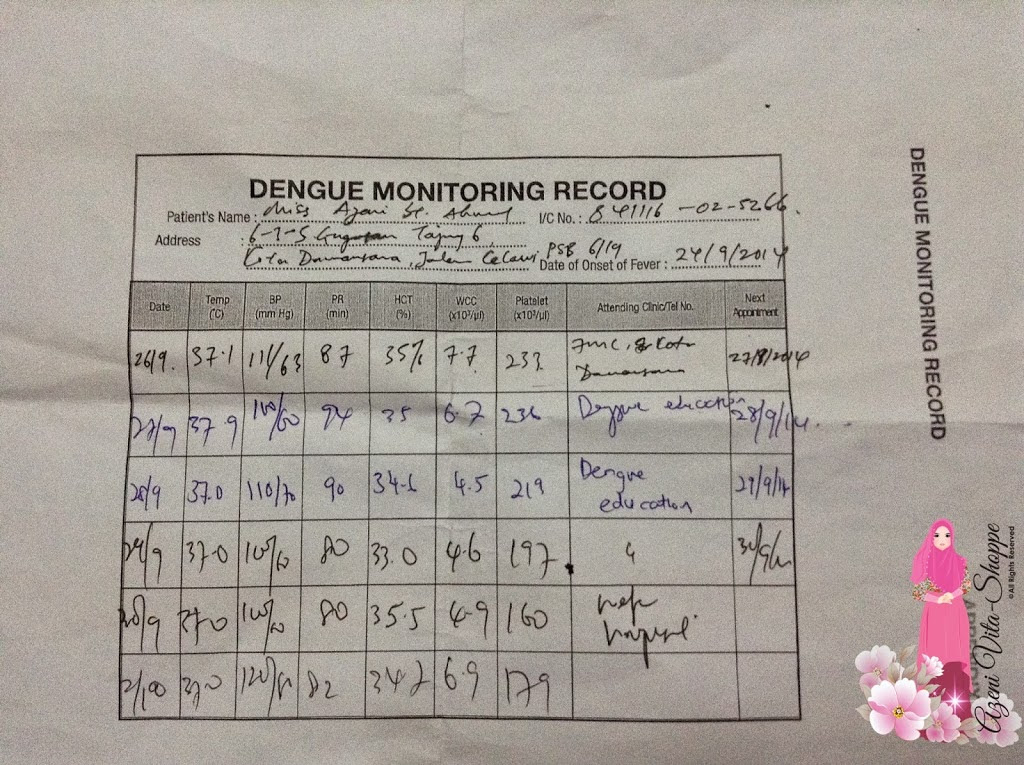 DENGUE MONITORING RECORD
Patient's Name : Miss Azeni I/C No. : 841116-02-5266.
Address : 6-7-5 Tajung 6,
Kota Damansara, Jalan PSB 6/19 Date of Onset of Fever : 24/9/2014
Date Temp (°C) BP (mm Hg) PR (min) HCT (%) WCC (x10³/µl) Platelet (x10³/µl) Attending Clinic/Tel No. Next Appointment
26/9. 37.1 111/63 87 35% 7.7 233. Kota Damansara
27/9 37.9 100/60 94 35 6.7 236 Dengue education 28/9/14.
28/9 37.0 110/70 90 34.6 4.5 219 Dengue education 29/9/14
29/9 37.0 80 33.0 4.6 197
37.0 80 35.5 4.9 160
37.0 82 34.2 6.9 179
DENGUE MONITORING RECORD
Azeni Vita-Shoppe
©All Rights Reserved